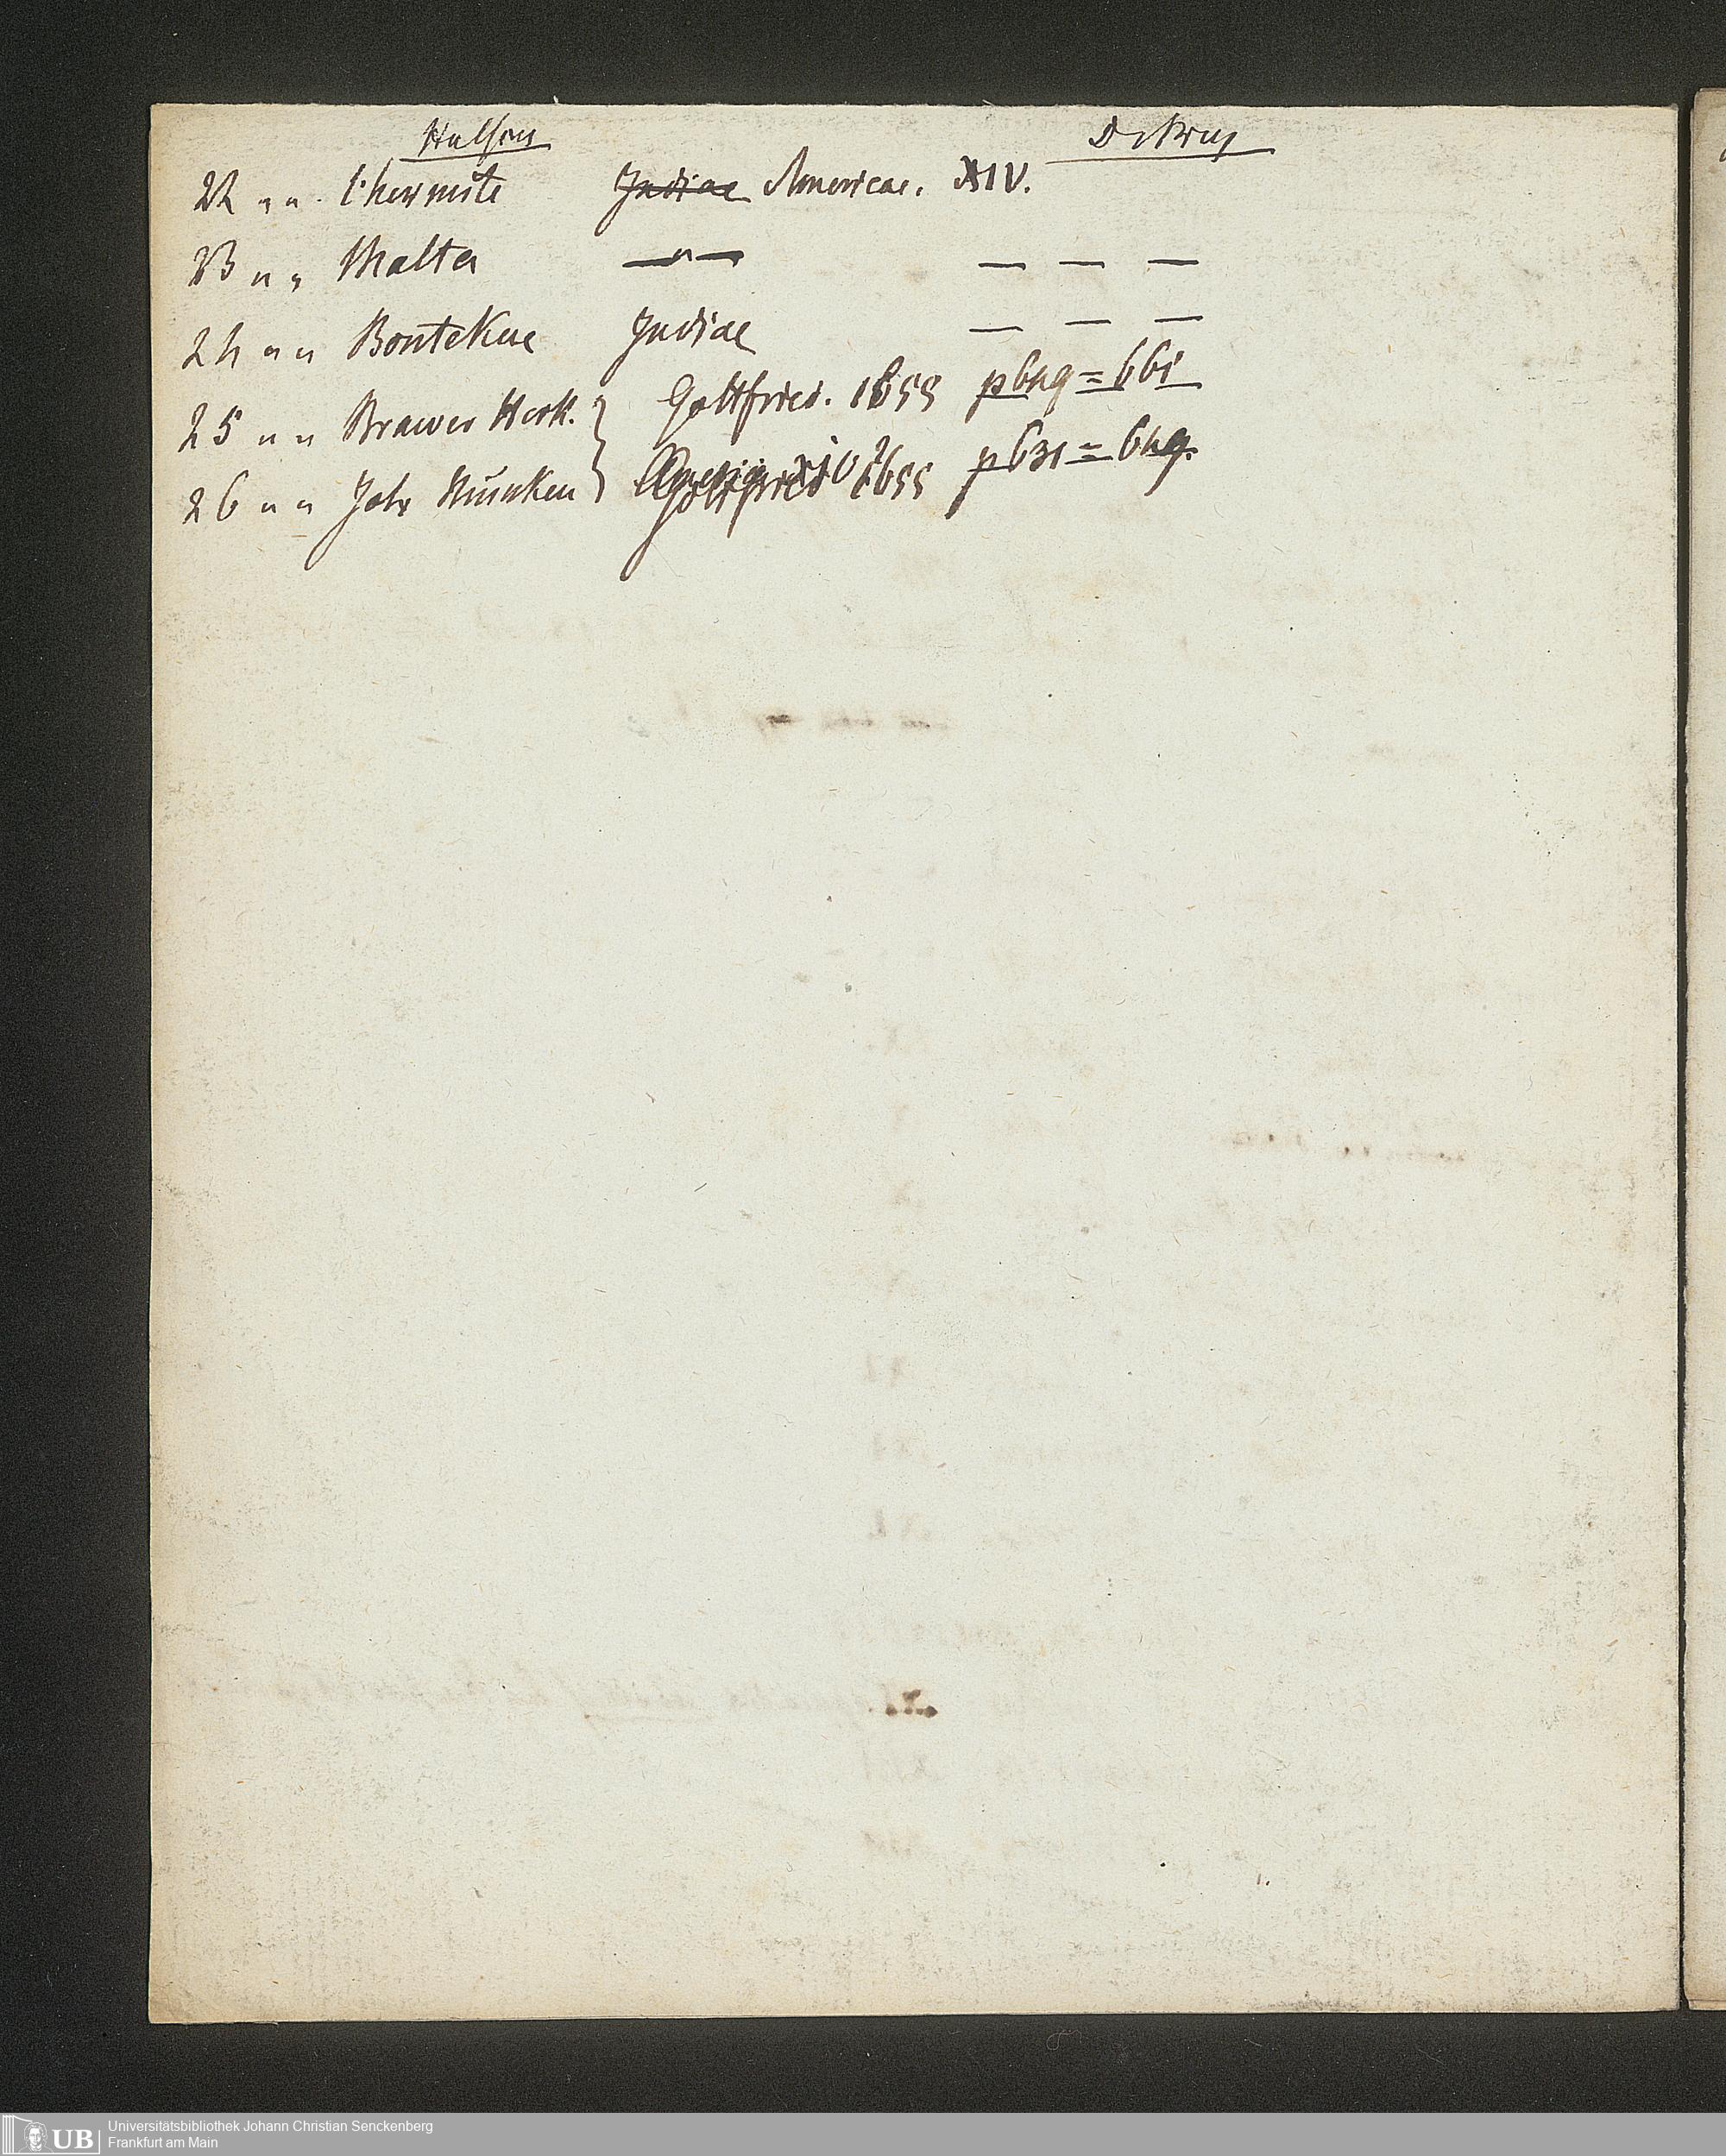 Hulsius Debruy
22 " " l'hermite Indiae Americae. XIV.
23 " " Malta — " — — — —
24 " " Bontekue Indiae — — —
25 " " Brawer Herk. Gottfried. 1655 p 649 = 661
26 " " Joh Müncken Gottfried 1655 p 631 = 649.
Universitätsbibliothek Johann Christian Senckenberg
Frankfurt am Main
UB